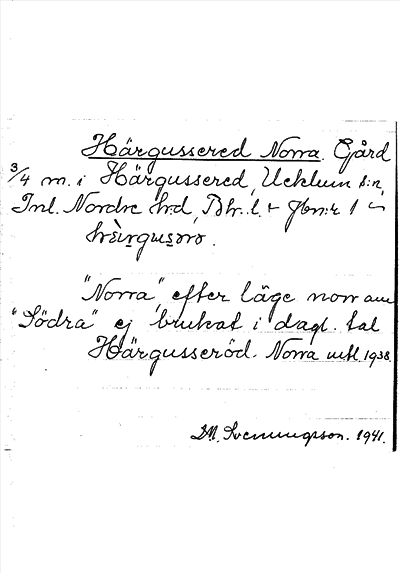 Härgussered Norra. Gård
3/4 m. i Härgussered, Ucklum s:n,
Inl. Nordre hrd, Bhr. l. Jbn:r 1
"Norra" efter läge norr om
"Södra" ej brukat i dagl. tal
Härgusseröd. Norra utt. 1938
Svenungsson. 1941.